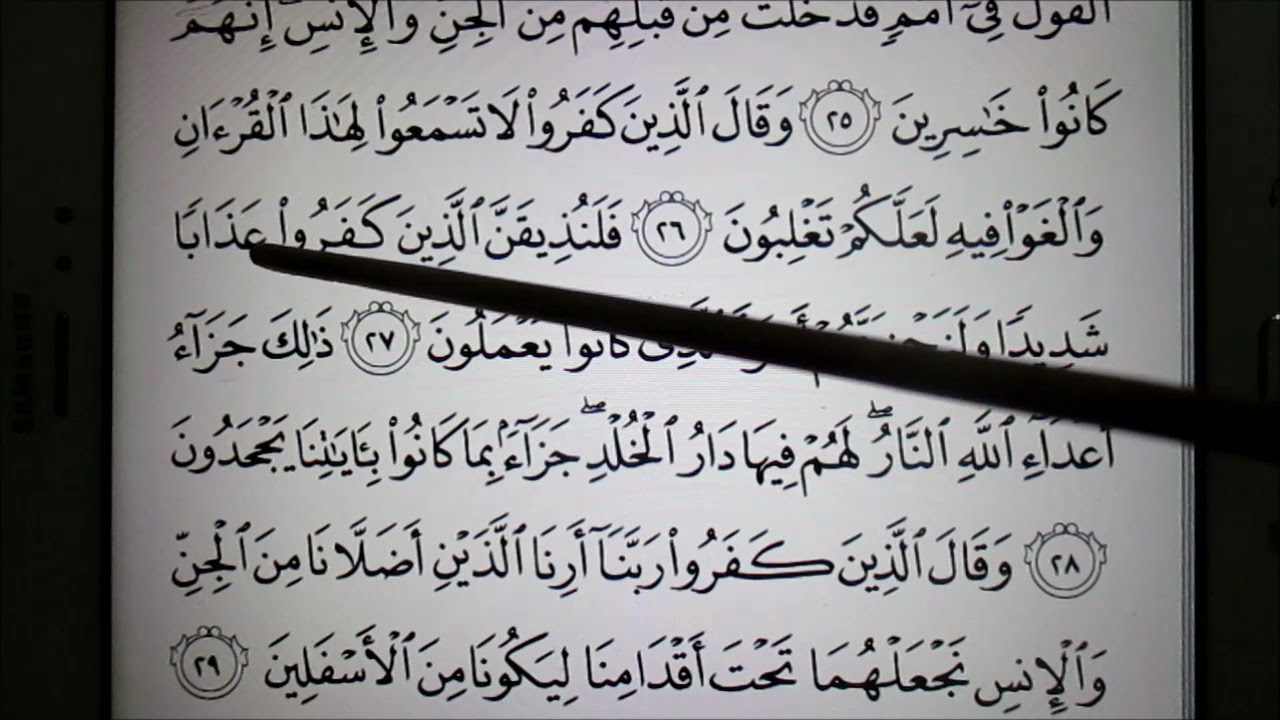 ٱلْقَوْلُ فِىٓ أُمَمٍ قَدْ خَلَتْ مِن قَبْلِهِم مِّنَ ٱلْجِنِّ وَٱلْإِنسِ إِنَّهُمْ
كَانُوا۟ خَـٰسِرِينَ ٢٥ وَقَالَ ٱلَّذِينَ كَفَرُوا۟ لَا تَسْمَعُوا۟ لِهَـٰذَا ٱلْقُرْءَانِ
وَٱلْغَوْا۟ فِيهِ لَعَلَّكُمْ تَغْلِبُونَ ٢٦ فَلَنُذِيقَنَّ ٱلَّذِينَ كَفَرُوا۟ عَذَابًا
شَدِيدًا كَانُوا۟ يَعْمَلُونَ ٢٧ ذَٰلِكَ جَزَآءُ
أَعْدَآءِ ٱللَّهِ ٱلنَّارُ ۖ لَهُمْ فِيهَا دَارُ ٱلْخُلْدِ ۖ جَزَآءًۢ بِمَا كَانُوا۟ بِـَٔايَـٰتِنَا يَجْحَدُونَ
٢٨ وَقَالَ ٱلَّذِينَ كَفَرُوا۟ رَبَّنَآ أَرِنَا ٱلَّذَيْنِ أَضَلَّانَا مِنَ ٱلْجِنِّ
وَٱلْإِنسِ نَجْعَلْهُمَا تَحْتَ أَقْدَامِنَا لِيَكُونَا مِنَ ٱلْأَسْفَلِينَ ٢٩
SAMSUNG